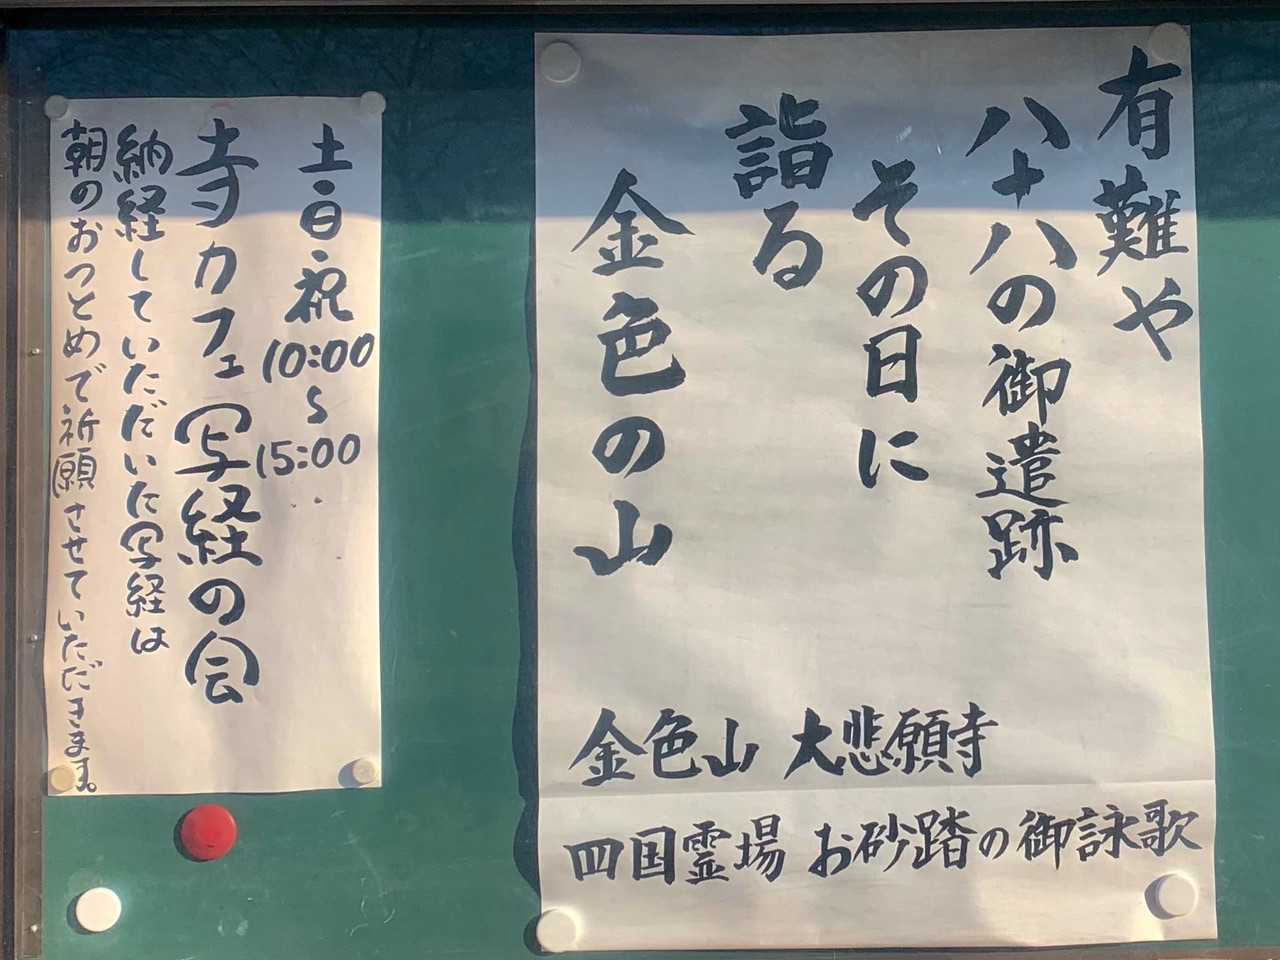 有難や
八十八の御遺跡
その日に
詣る
金色の山
金色山 大悲願寺
四国霊場 お砂踏の御詠歌
土・日・祝 10:00〜15:00
寺カフェ 写経の会
納経していただいた写経は
朝のおつとめで祈願させていただきます。